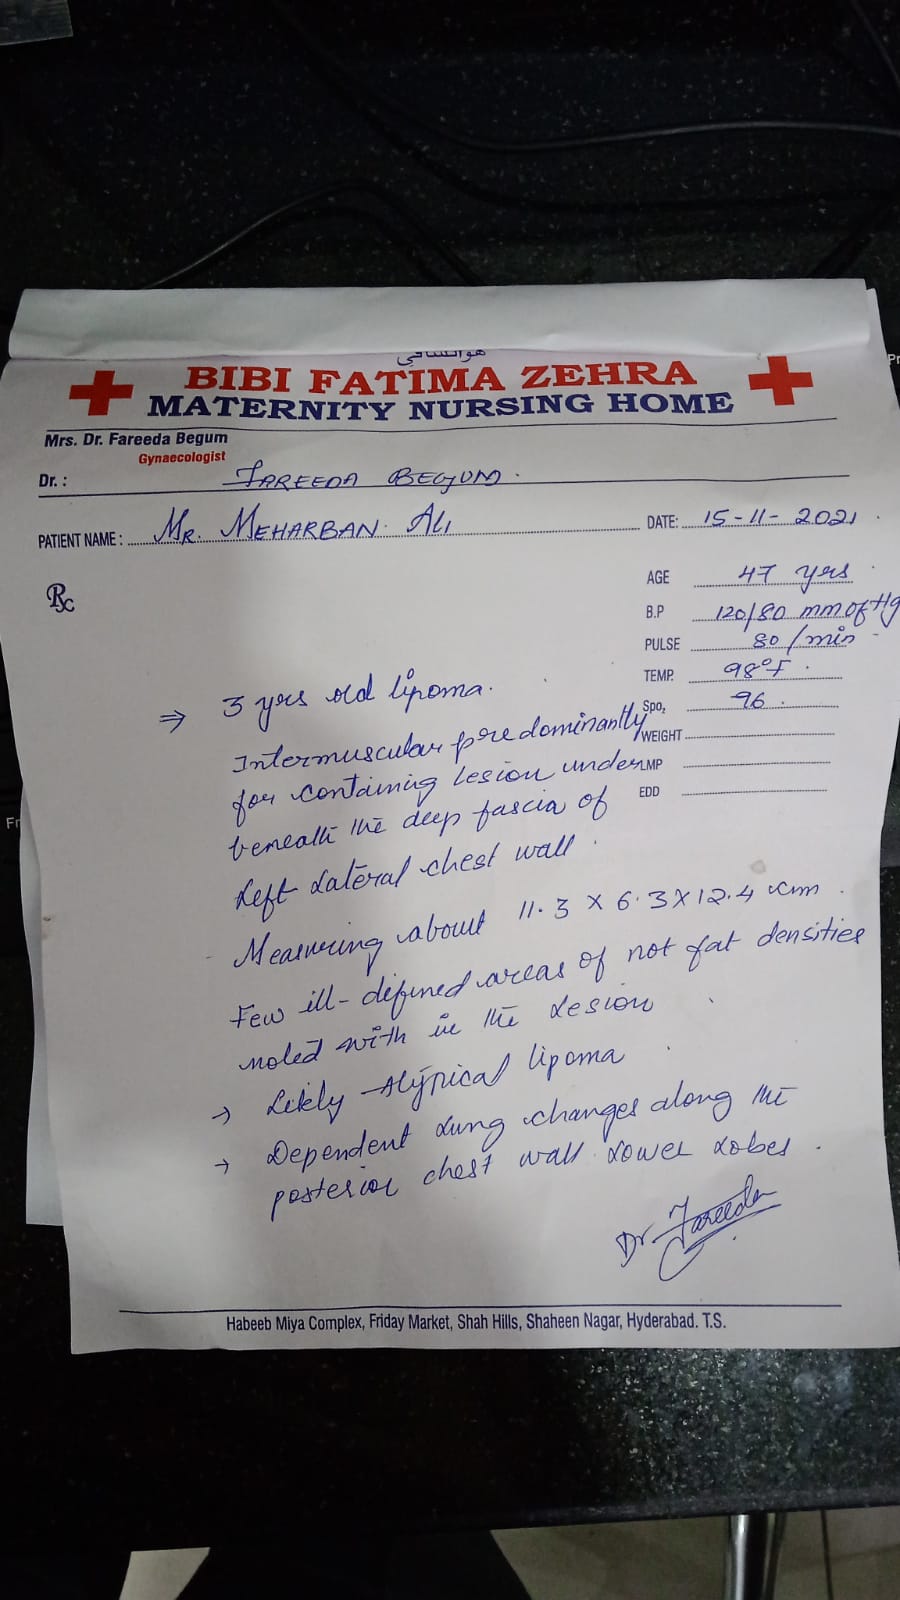 BIBI FATIMA ZEHRA
MATERNITY NURSING HOME
Mrs. Dr. Fareeda Begum
Gynaecologist
Dr. : FAREEDA BEGUM.
PATIENT NAME : MR. MEHARBAN ALI
DATE: 15-11-2021
Rx
AGE 47 yrs
B.P 120/80 mm of Hg
PULSE 80/min
TEMP. 98°F
Spo2 96
WEIGHT
LMP
EDD
⇒ 3 yrs old lipoma.
Intermuscular predominantly
for containing lesion under
beneath the deep fascia of
Left Lateral chest wall.
Measuring about 11.3 x 6.3 x 12.4 cm.
Few ill-defined areas of not fat densities
noted with in the Lesion
→ Likely Atypical lipoma
→ Dependent Lung changes along the
posterior chest wall Lower Lobes.
Dr. Fareeda
Habeeb Miya Complex, Friday Market, Shah Hills, Shaheen Nagar, Hyderabad. T.S.